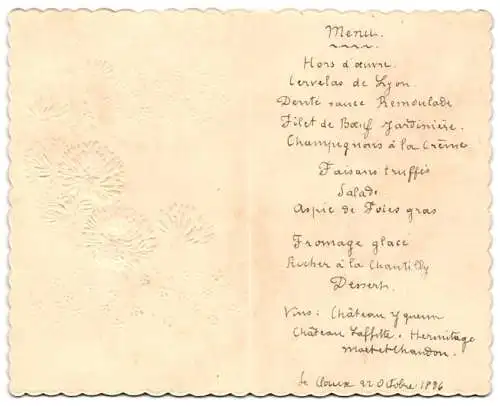 Menu.
Hors d'œuvre.
Cervelas de Lyon.
Denté sauce Remoulade
Filet de Bœuf Jardinière.
Champignons à la Crème
Faisans truffés
Salade
Aspic de Foies gras
Fromage glacé
Rocher à la Chantilly
Dessert.
Vins: Château Yquem
Château Laffitte. Hermitage
Moët et Chandon.
Le 22 Octobre 1896